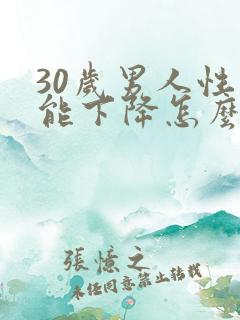 30歲男人性
能下降怎麼
張憶之
未经同意禁止转载